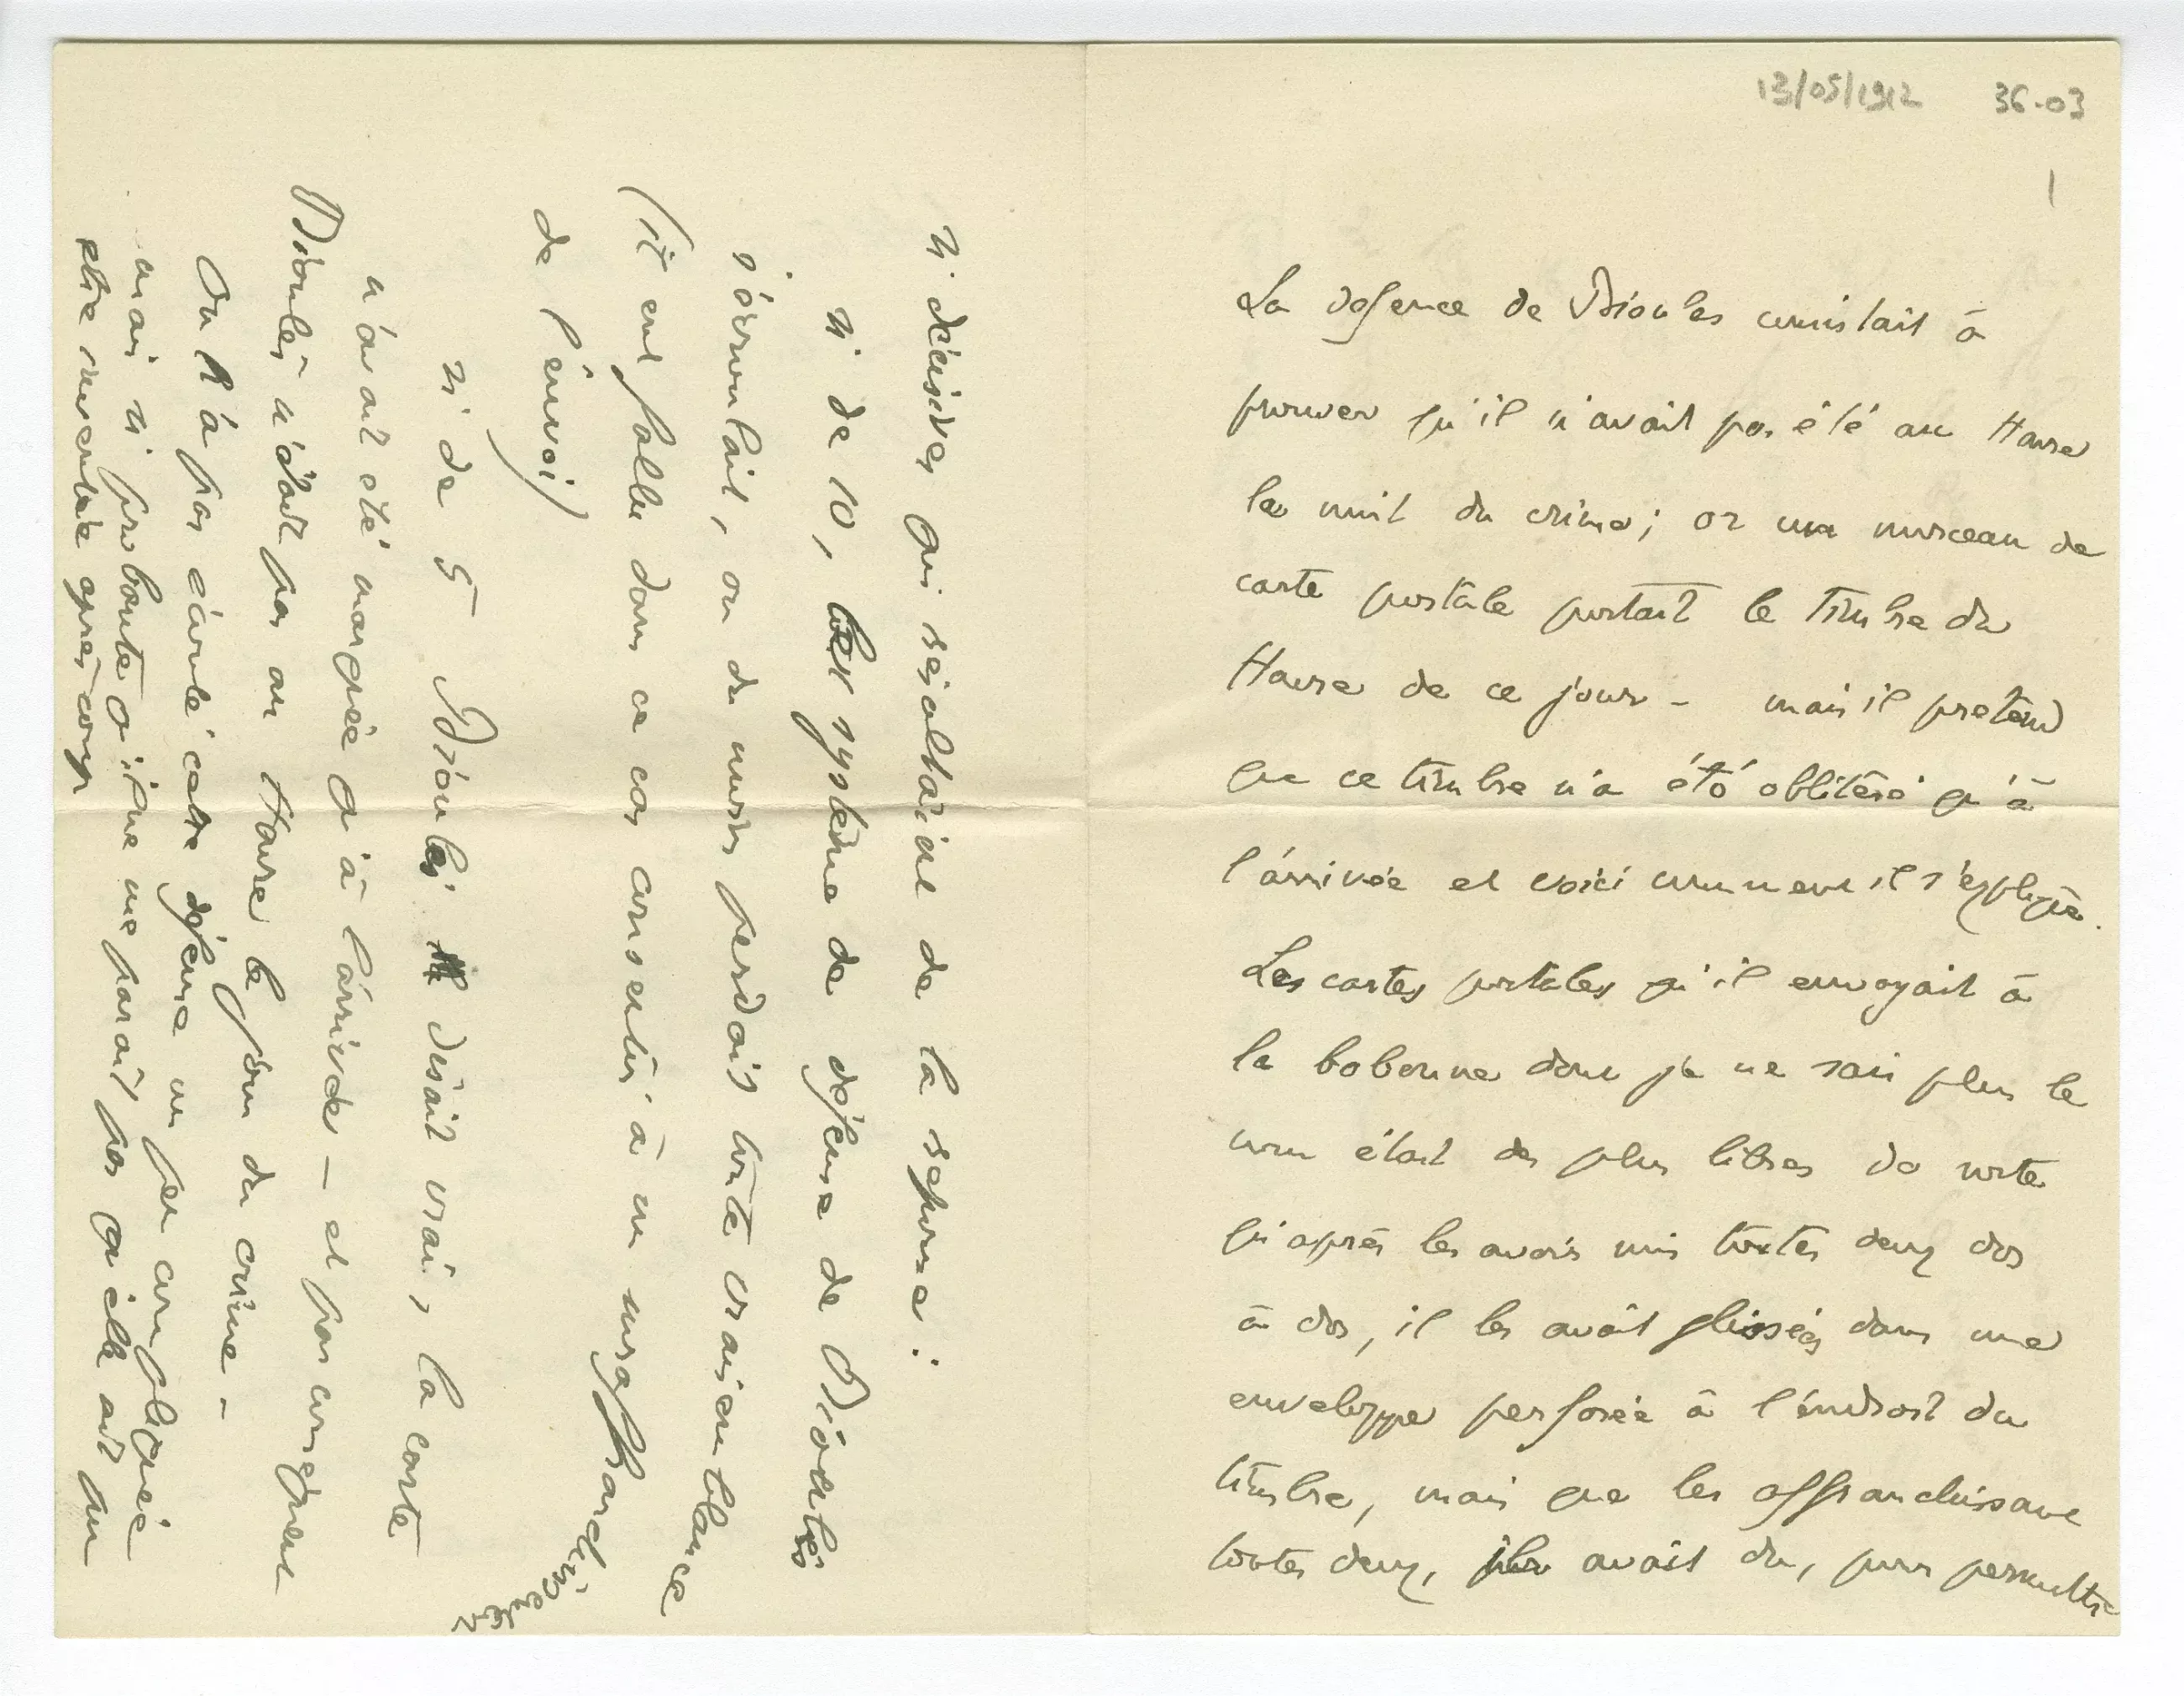 13/05/1912 36-03
1
La défence de Brioules consistait à
prouver qu'il n'avait pas été au Havre
la nuit du crime; or un morceau de
carte postale portait le timbre du
Havre de ce jour - mais il prétend
que ce timbre n'a été oblitéré qu'à
l'arrivée et voici comment il s'explique.
Les cartes postales qu'il envoyait à
la bobonne dont je ne sais plus le
nom était des plus libres de sorte
qu'après les avoir mis toutes deux dos
à dos, il les avait glissées dans une
enveloppe perforée à l'endroit du
timbre, mais que les affranchissant
toutes deux, il avait du, pour permettre
si décisives qui résultaient de la reponse:
si de 10, le système de défense de Brioules
s'écroulait, ou du moins perdait toute vraisemblance
(il eut fallu dans ce cas consentir à un suraffranchissement
de l'envoi)
si de 5 Brioules disait vrai, la carte
n'avait été marquée qu'à l'arrivée - et par conséquent
Brioules n'était pas au Havre le jour du crime -
On n'a pas écouté cette défense un peu compliquée
mais si probante qu'il ne me parait pas qu'elle ait pu
etre inventée après coup